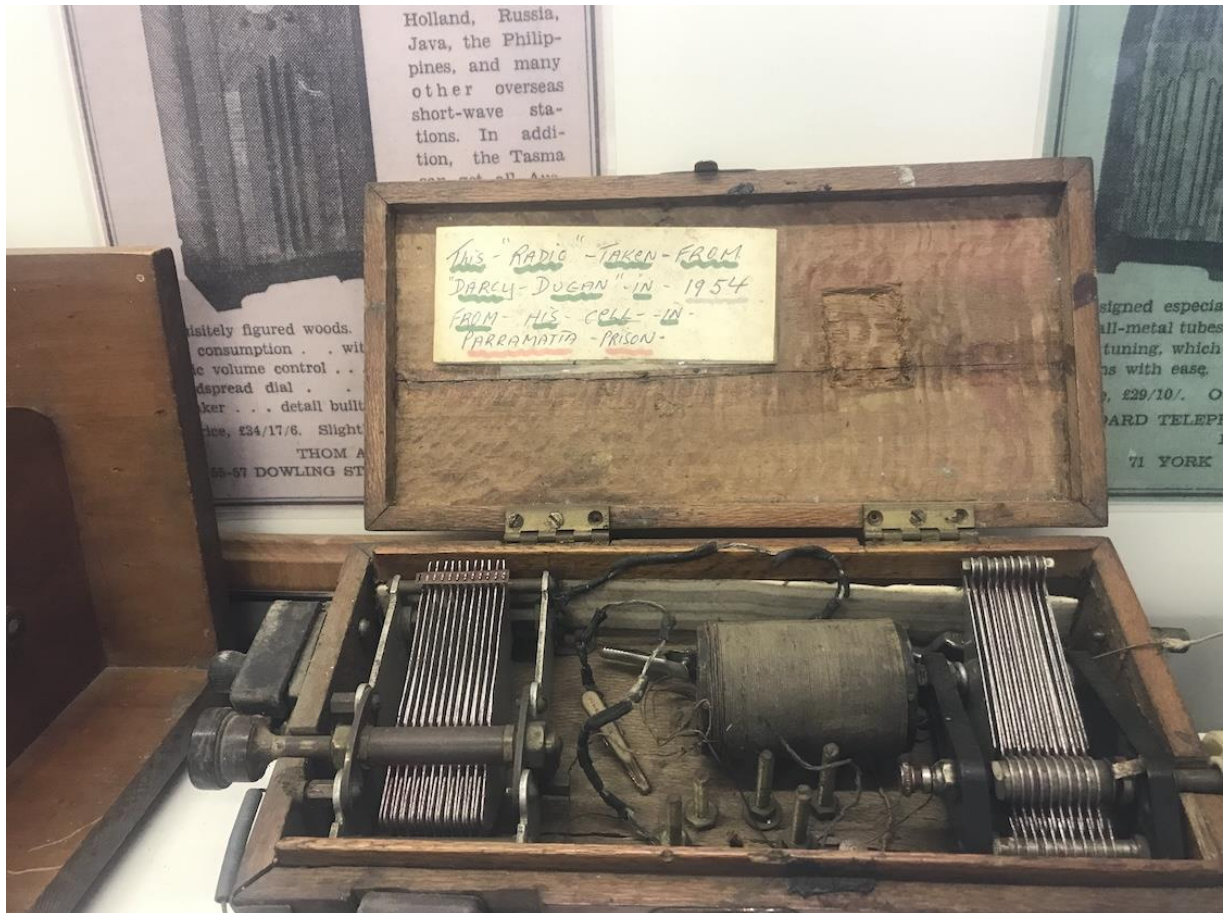 Holland, Russia,
Java, the Philip-
pines, and many
other overseas
short-wave sta-
tions. In addi-
tion, the Tasma
can get all Aus-
This - "RADIO" - TAKEN - FROM
"DARCY - DUGAN" - IN - 1954
FROM - HIS - CELL - IN -
PARRAMATTA - PRISON -
isitely figured woods.
consumption . . wit
ic volume control . .
dspread dial . .
aker . . . detail built
rice, £34/17/6. Slight
THOM A
55-57 DOWLING ST
signed especia
all-metal tubes
tuning, which
ns with ease.
e, £29/10/. O
ARD TELEP
71 YORK